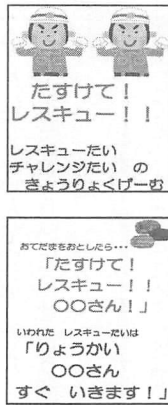 たすけて！
レスキュー！！
レスキューたい
チャレンジたい の
きょうりょくげーむ
おてだまをおとしたら・・・
「たすけて！
レスキュー！！
○○さん！」
いわれた レスキューたいは
「りょうかい
○○さん
すぐ いきます！」